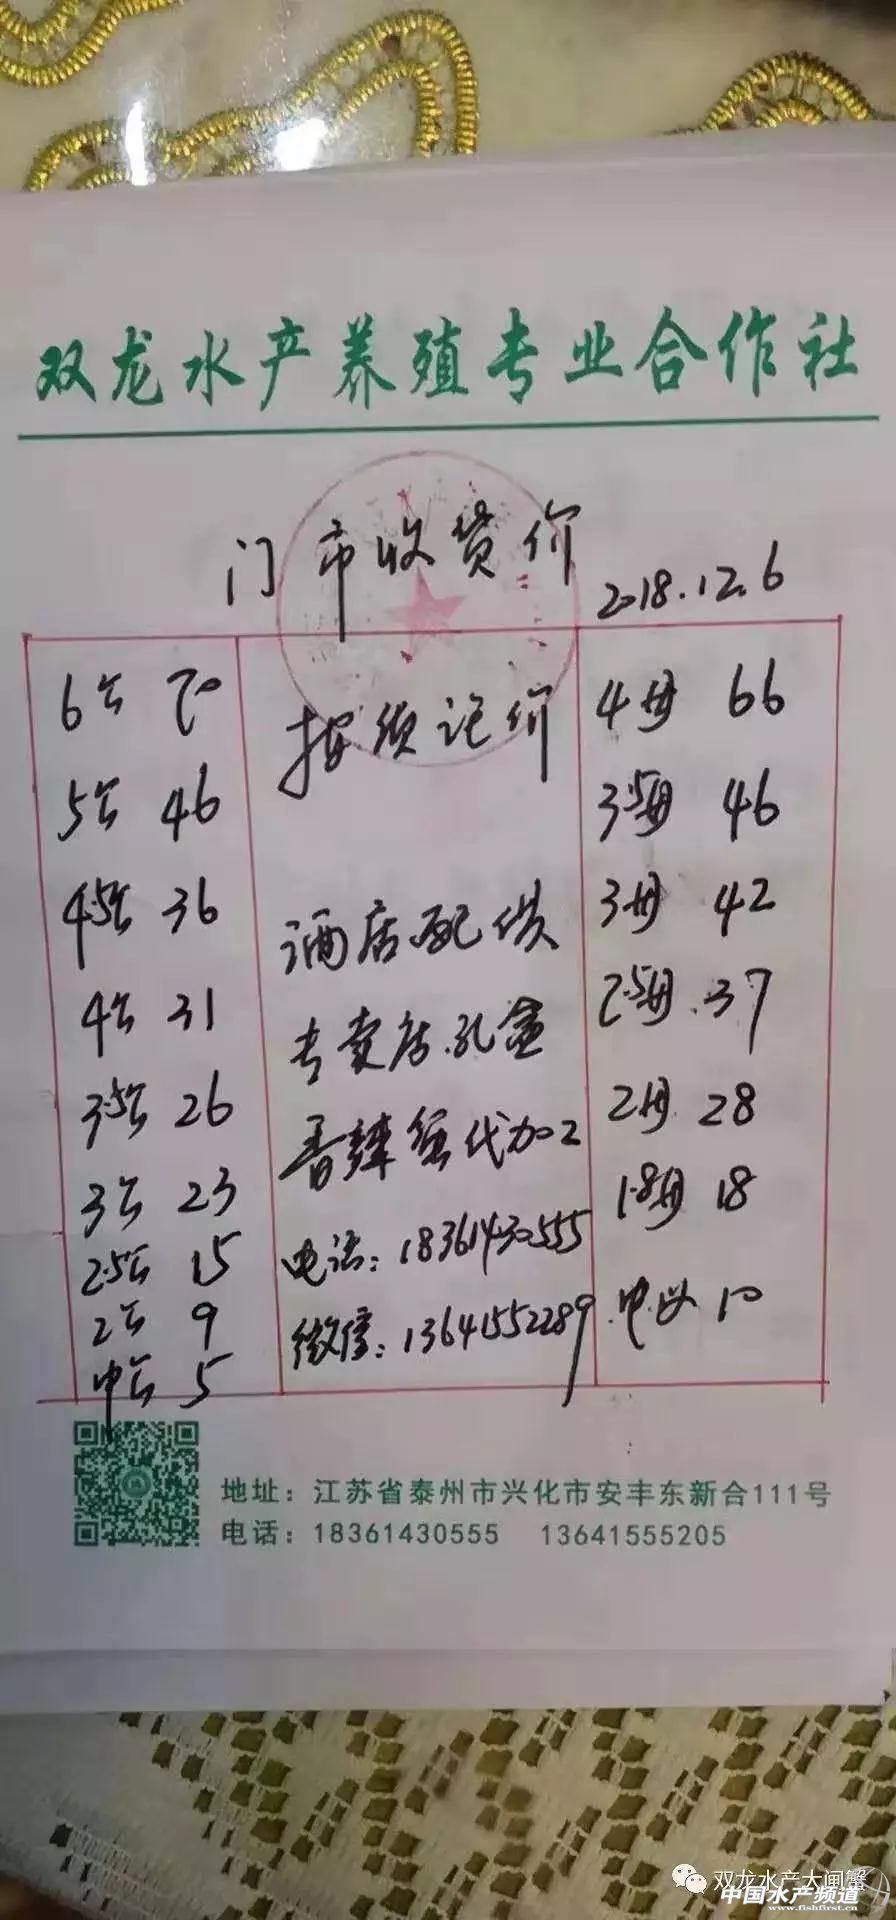 双龙水产养殖专业合作社
门市收货价
2018.12.6
6公 70
5公 46
4.5公 36
4公 31
3.5公 26
3公 23
2.5公 15
2公 9
中公 5
按须记价
酒店配供
专卖店.礼盒
香辣蟹代加工
电话:18361430555
微信:13641552289
4母 66
3.5母 46
3母 42
2.5母.37
2母 28
1.8母 18
中母 10
地址:江苏省泰州市兴化市安丰东新合111号
电话:18361430555 13641555205
双龙水产大闸蟹
中国水产频道
www.fishfirst.cn